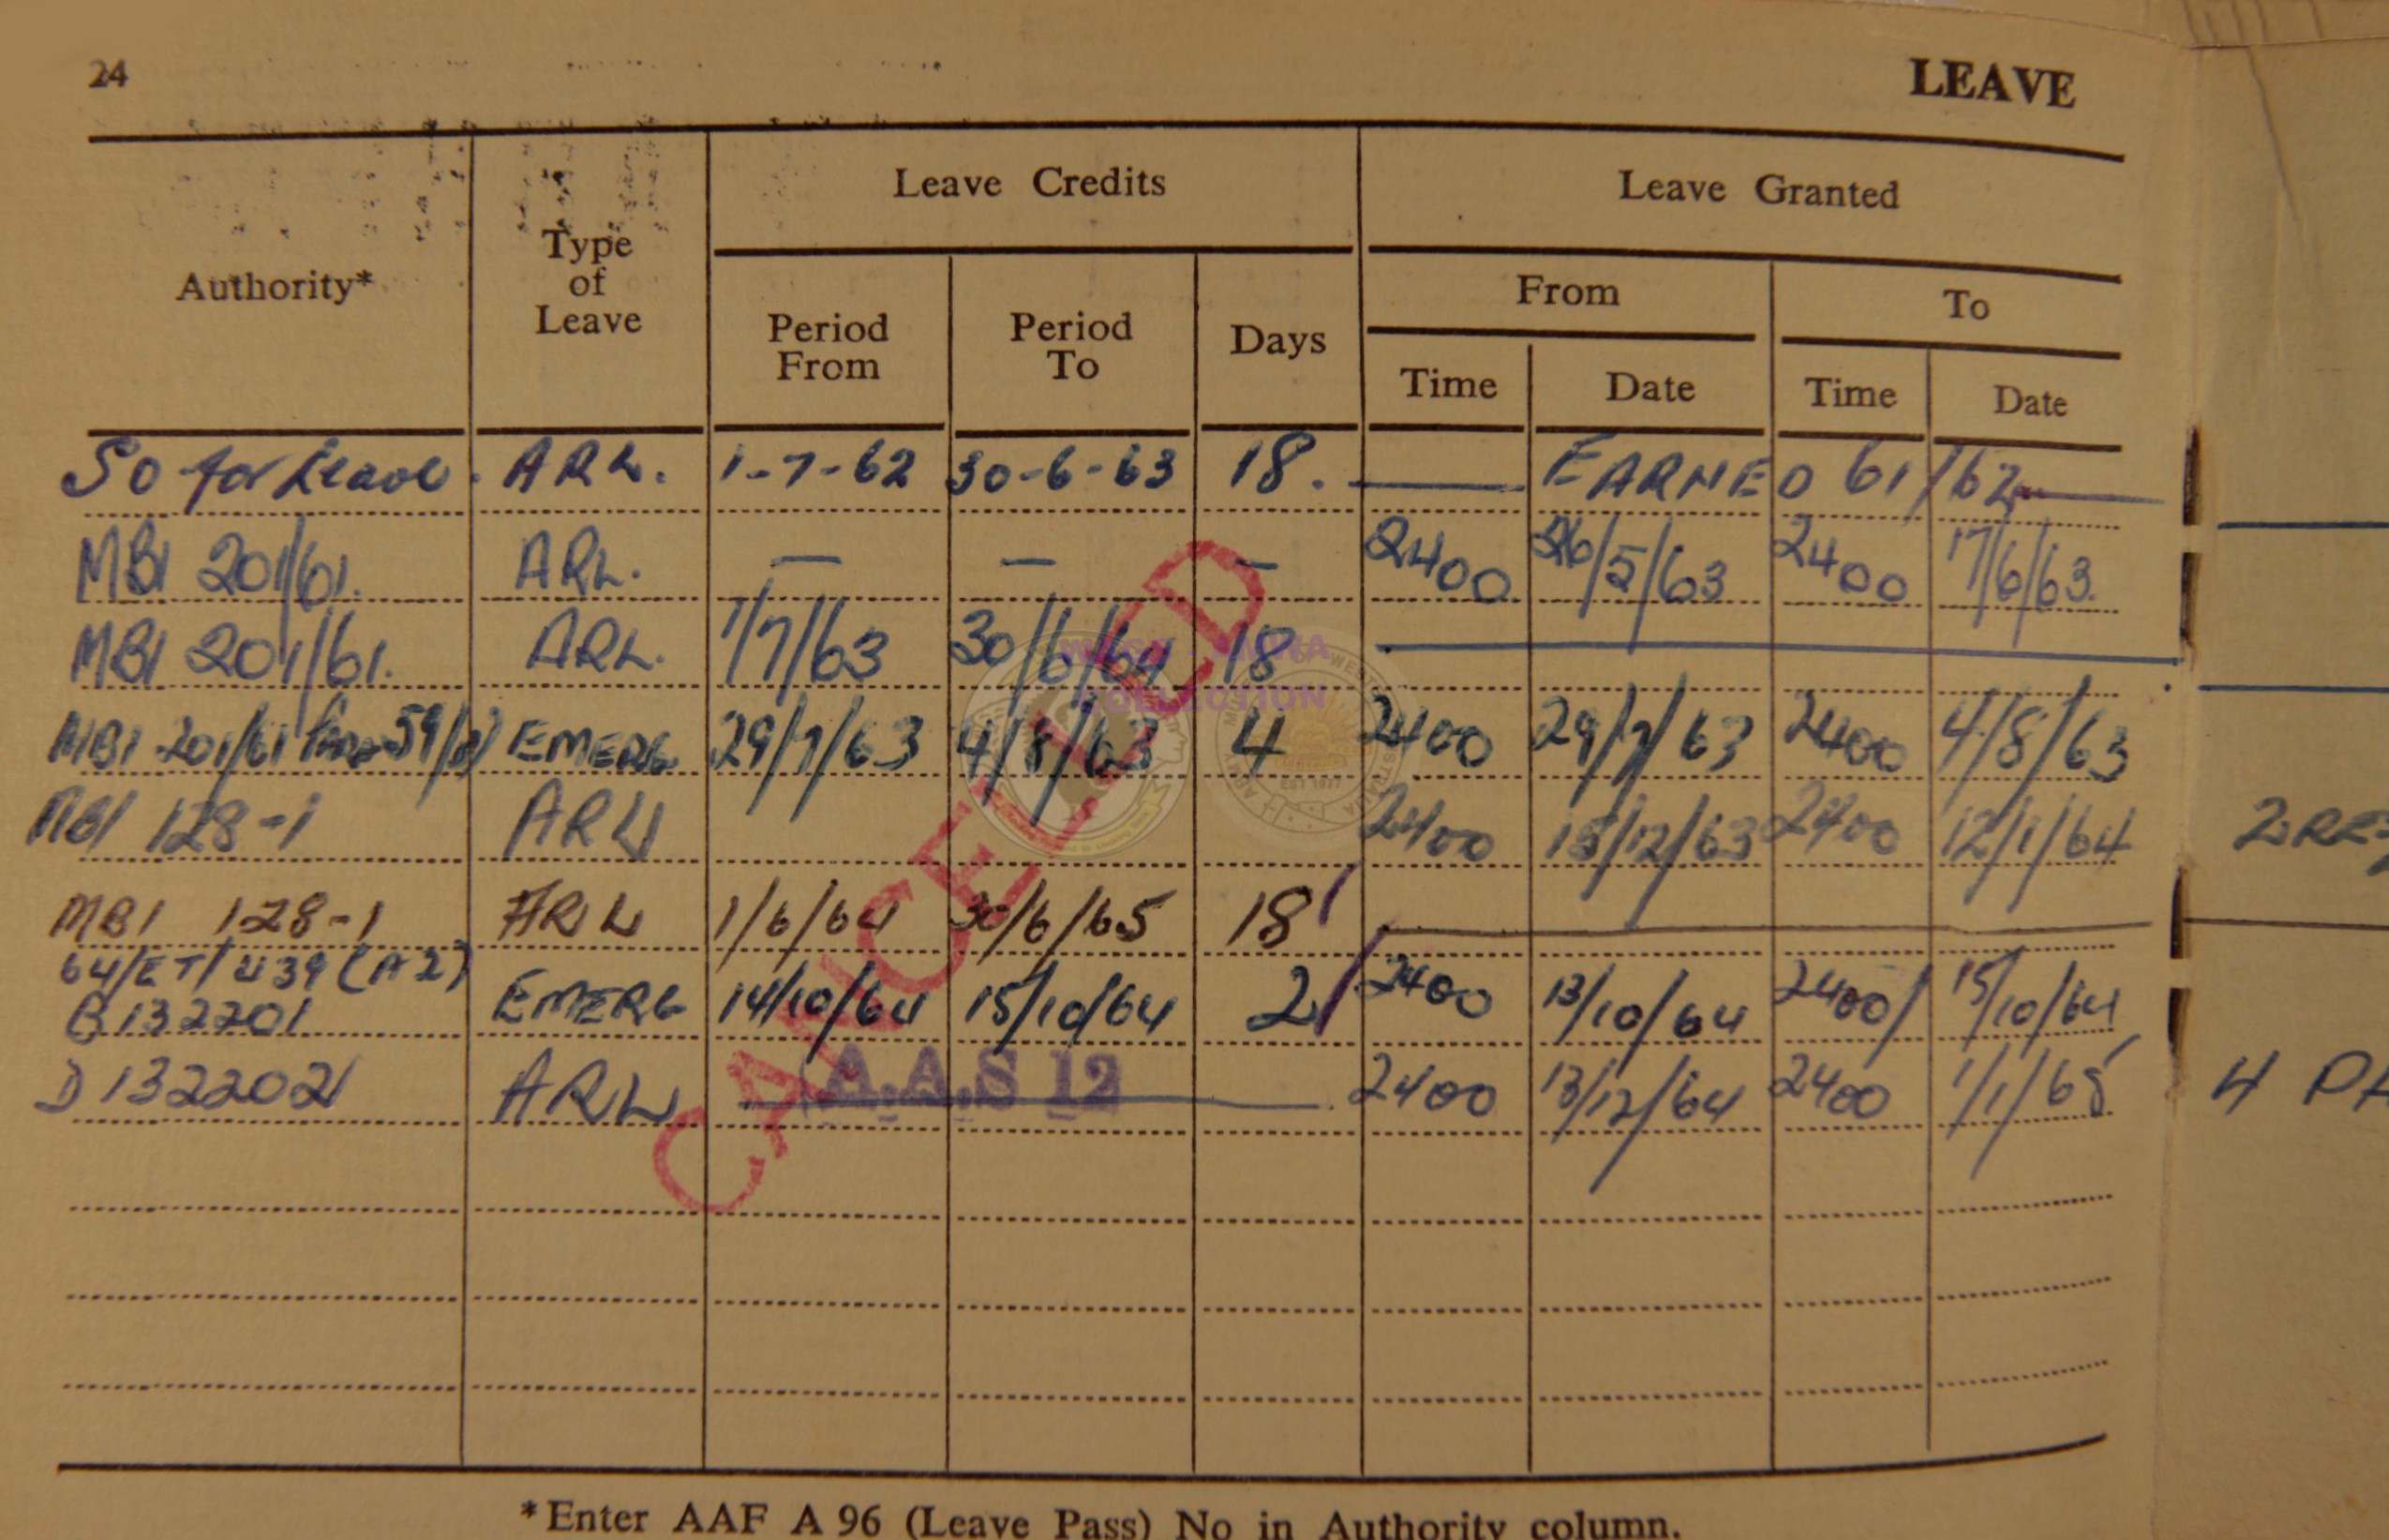 24 LEAVE
Leave Credits Leave Granted
Authority* Type of Leave Period From Period To Days From To
Time Date Time Date
SO for Leave. ARL. 1-7-62 30-6-63 18. — EARNED 61/62 —
MBI 201/61. ARL. — — — 2400 26/5/63 2400 17/6/63.
MBI 201/61. ARL. 1/7/63 30/6/64 18
MBI 201/61 EMERG 29/7/63 4/8/63 4 2400 29/7/63 2400 4/8/63
MBI 128-1 ARL 2400 15/12/63 2400 12/1/64
2 RE
MBI 128-1 ARL 1/6/64 30/6/65 18
64/ET/439 (A2)
B132201 EMERG 14/10/64 15/10/64 2 2400 13/10/64 2400 15/10/64
D132202 ARL 2400 13/12/64 2400 1/1/65
4 PA
CANCELLED
A.A.S 12
COLLECTION
*Enter AAF A 96 (Leave Pass) No in Authority column.